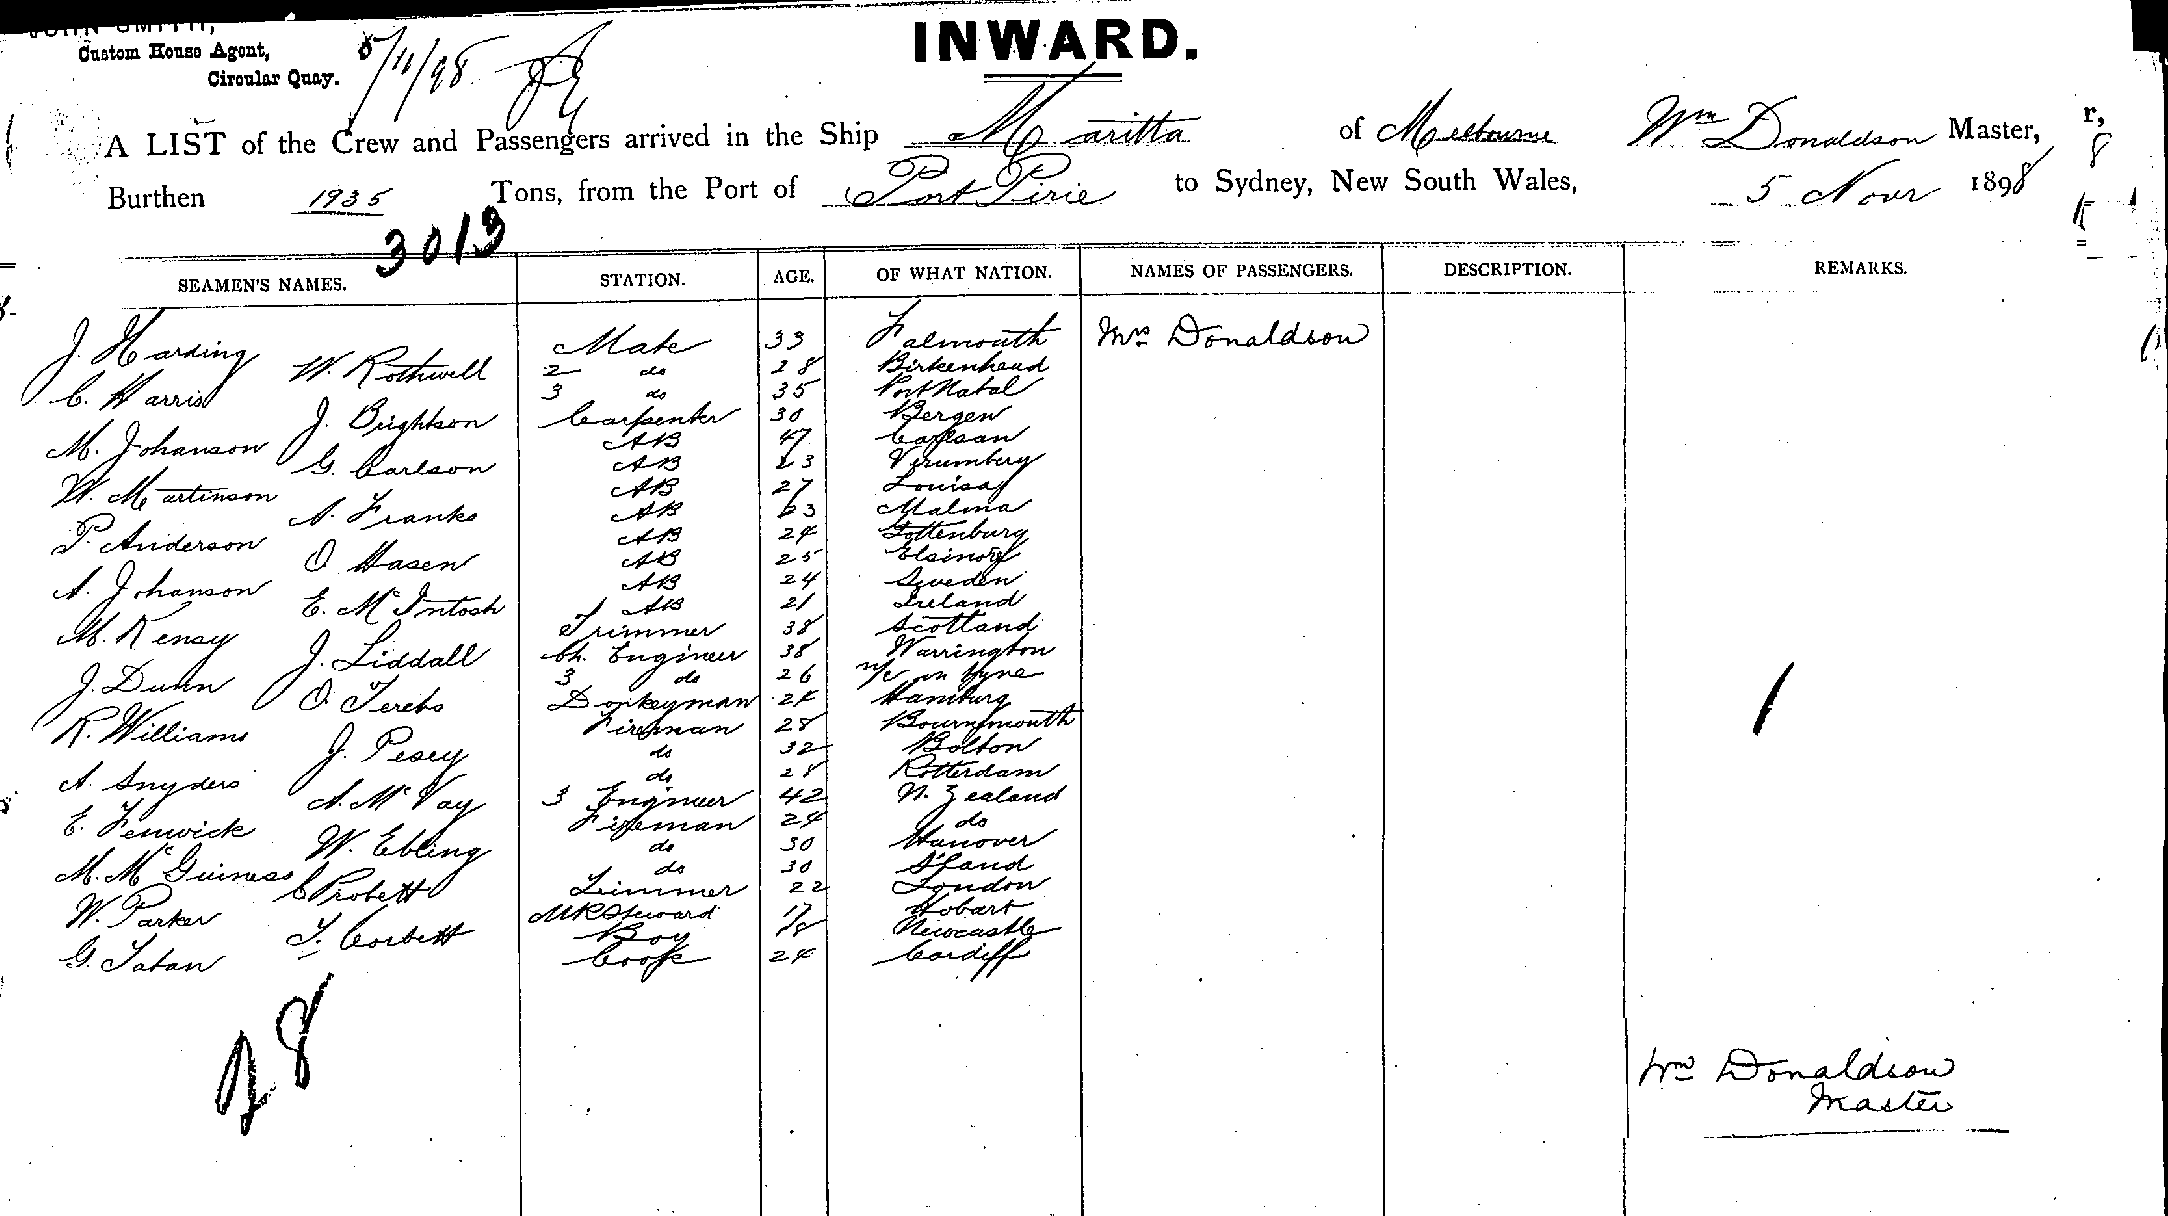 JOHN SMITH,
Custom House Agent,
Circular Quay.
5/11/98
INWARD.
A LIST of the Crew and Passengers arrived in the Ship Maritta of Melbourne Wm Donaldson Master,
Burthen 1935 Tons, from the Port of Port Pirie to Sydney, New South Wales, 5 Novr 1898
3013
SEAMEN'S NAMES. STATION. AGE. OF WHAT NATION. NAMES OF PASSENGERS. DESCRIPTION. REMARKS.
J. Harding Mate 33 Falmouth Mrs Donaldson
W. Rothwell 2 do 28 Birkenhead
C. Harris 3 do 35 Port Natal
J. Brightson Carpenter 30 Bergen
M. Johanson AB 47
G. Carlson AB 23
W. Martinson AB 27 Louisa
A. Franks AB 23 Malma
P. Anderson AB 24 Gottenburg
O Hasen AB 25 Elsinore
A. Johanson AB 24 Sweden
E. McIntosh AB 21 Ireland
M. Kensy Trimmer 38 Scotland
J. Liddall Ch. Engineer 38 Warrington
J. Dunn 3 do 26 N/c on Tyne
O. Terebs Donkeyman 24 Hamburg
R. Williams Fireman 28 Bournemouth
J. Pesey do 32 Bolton
A. Snyders do 28 Rotterdam
A. McVay 3 Engineer 42 N. Zealand
E. Fenwick Fireman 24 do
W. Ebling do 30 Hanover
M. McGuiness do 30
C Probett Trimmer 22 London
W. Parker Steward 17 Hobart
T. Corbett Boy 18 Newcastle
G. Tatan Cook 24 Cardiff
28
Wm Donaldson
Master